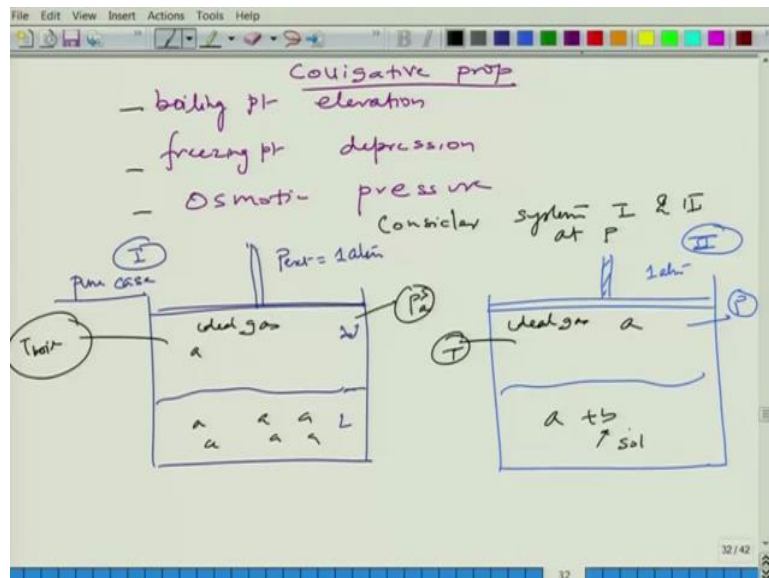 File Edit View Insert Actions Tools Help
Colligative prop
— boiling pt elevation
— freezing pt depression
— Osmotic pressure
Consider system I & II
at P
I
Pext = 1 atm
II
1 atm
pure case
ideal gas
Pas
ideal gas a
P
Tboil
a
T
a a a L
a a a
a + b
sol
32/42
32